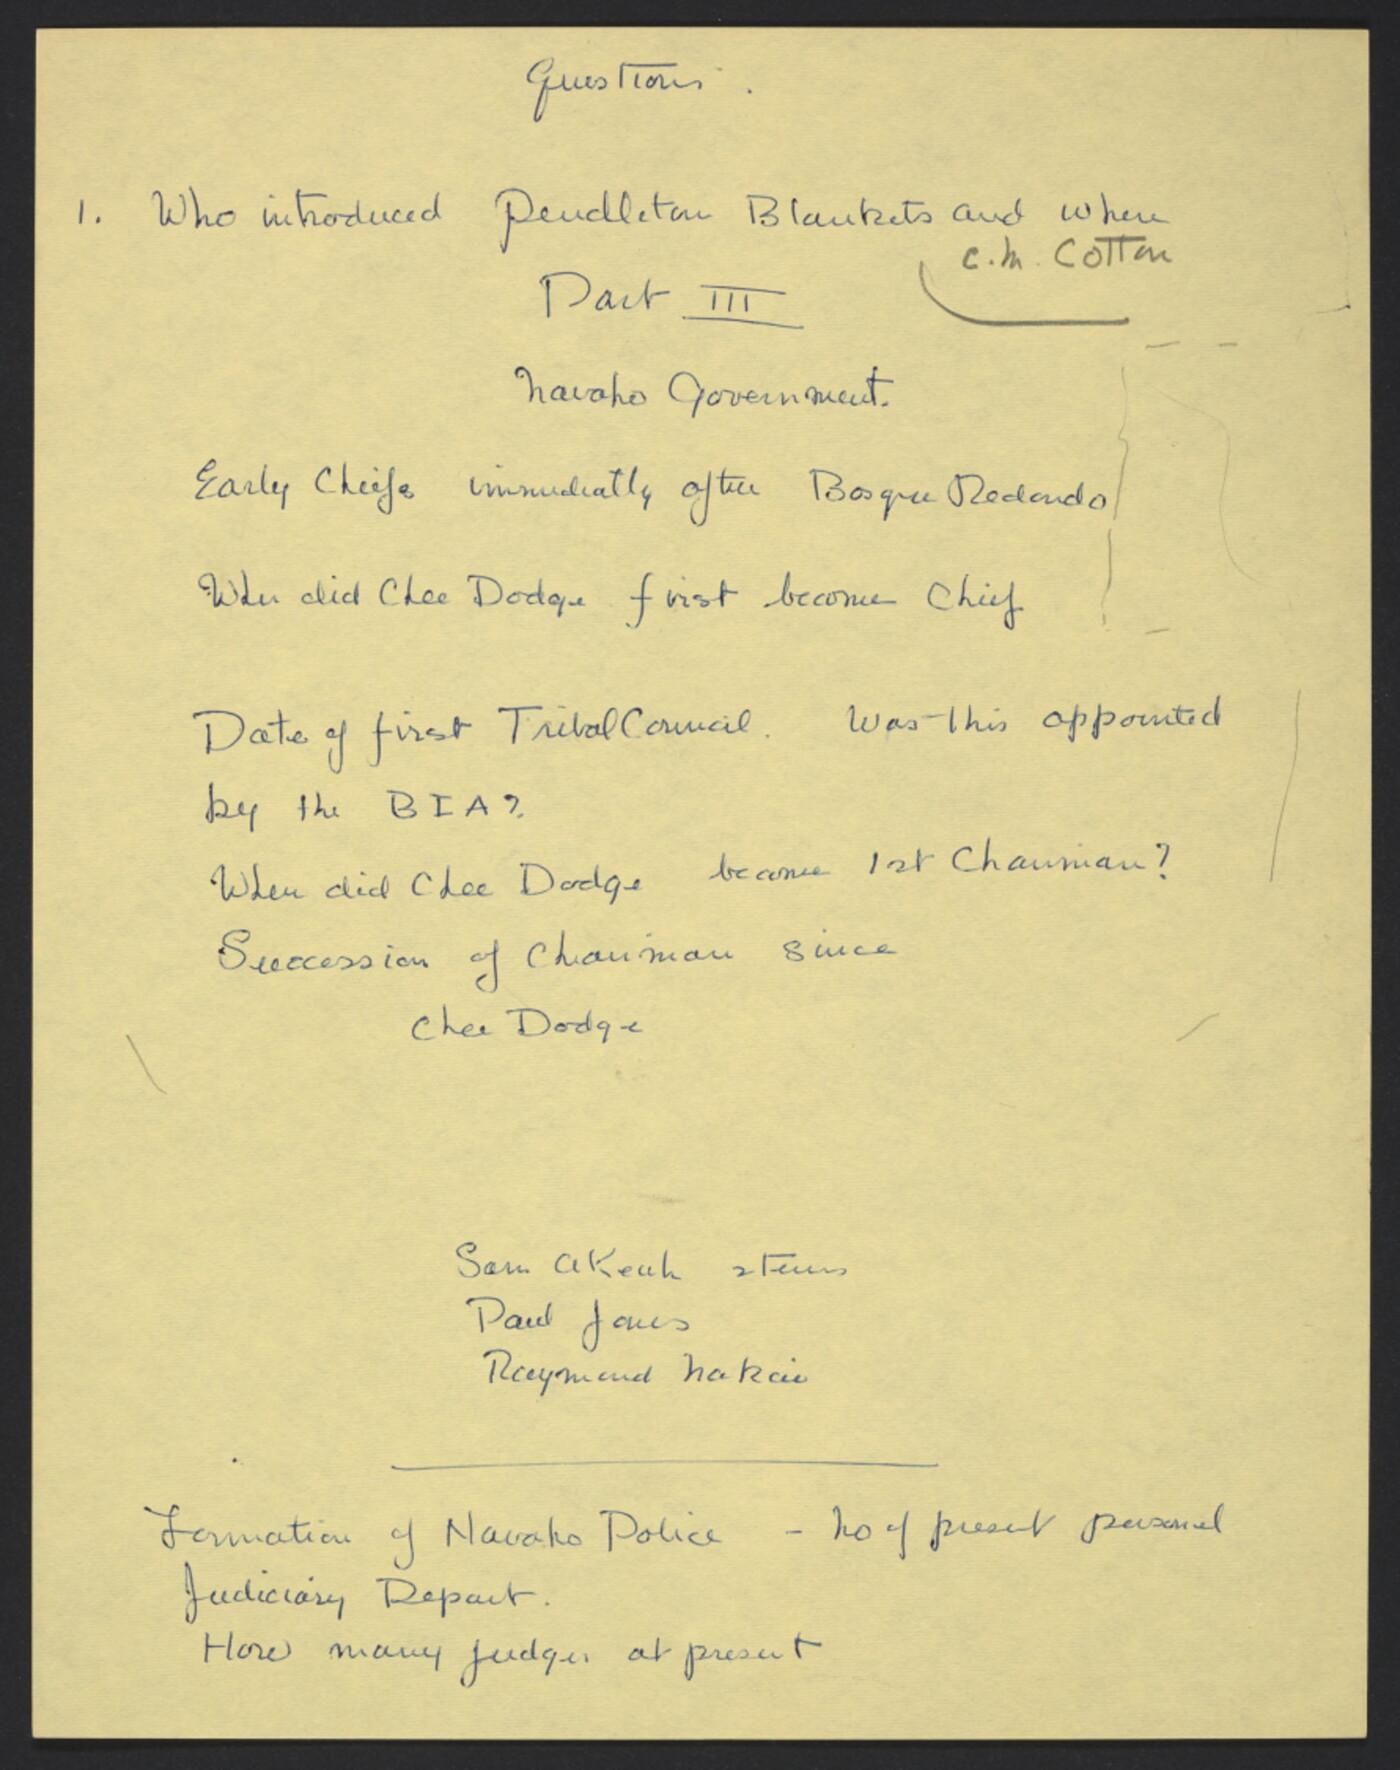 Questions.
1. Who introduced Pendleton Blankets and when
C.M. Cotton
Part III
Navaho Government.
Early Chiefs immediatly after Bosque Redondo
When did Chee Dodge first become Chief
Date of first Tribal Council. Was this appointed
by the BIA?
When did Chee Dodge become 1st Chairman?
Succession of Chairman since
Chee Dodge
Sam AKeah 2 terms
Paul Jones
Raymond Nakai
Formation of Navaho Police - No of present personel
Judiciary Depart.
How many judges at present